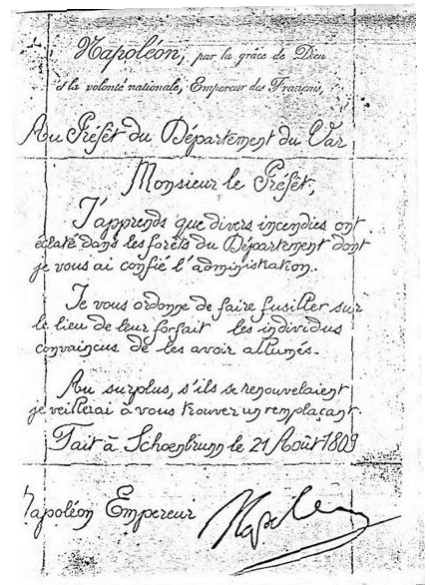 Napoléon, par la grâce de Dieu
et la volonté nationale, Empereur des Français,
Au Préfet du Département du Var
Monsieur le Préfet,
J'apprends que divers incendies ont
éclaté dans les forêts du Département dont
je vous ai confié l'administration.
Je vous ordonne de faire fusiller sur
le lieu de leur forfait les individus
convaincus de les avoir allumés.
Au surplus, s'ils se renouvelaient
je veillerai à vous trouver un remplaçant.
Fait à Schoenbrunn le 21 Août 1809
Napoléon Empereur Napoléon